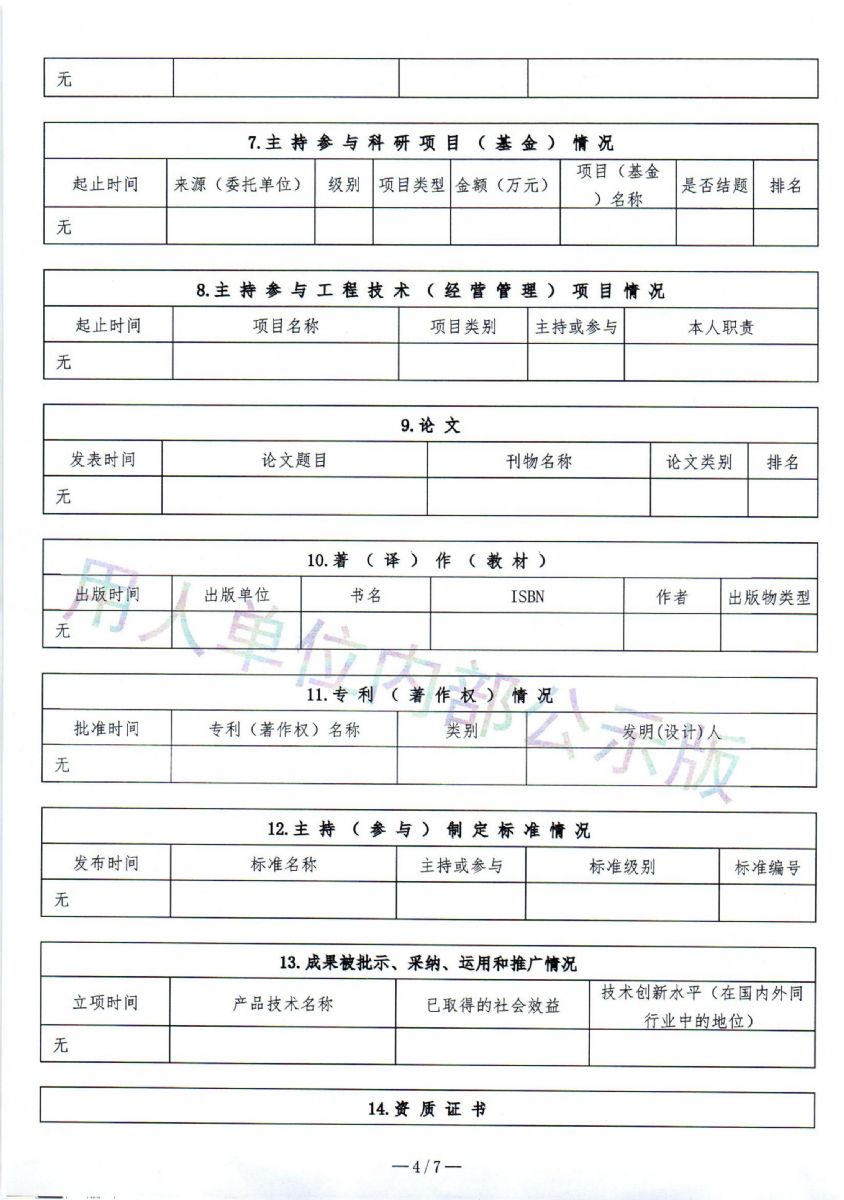 无
7.主持参与科研项目（基金）情况
起止时间 来源（委托单位） 级别 项目类型 金额（万元） 项目（基金）名称 是否结题 排名
无
8.主持参与工程技术（经营管理）项目情况
起止时间 项目名称 项目类别 主持或参与 本人职责
无
9.论文
发表时间 论文题目 刊物名称 论文类别 排名
无
10.著（译）作（教材）
出版时间 出版单位 书名 ISBN 作者 出版物类型
无
用人单位内部公示版
11.专利（著作权）情况
批准时间 专利（著作权）名称 类别 发明(设计)人
无
12.主持（参与）制定标准情况
发布时间 标准名称 主持或参与 标准级别 标准编号
无
13.成果被批示、采纳、运用和推广情况
立项时间 产品技术名称 已取得的社会效益 技术创新水平（在国内外同行业中的地位）
无
14.资质证书
—4/7—